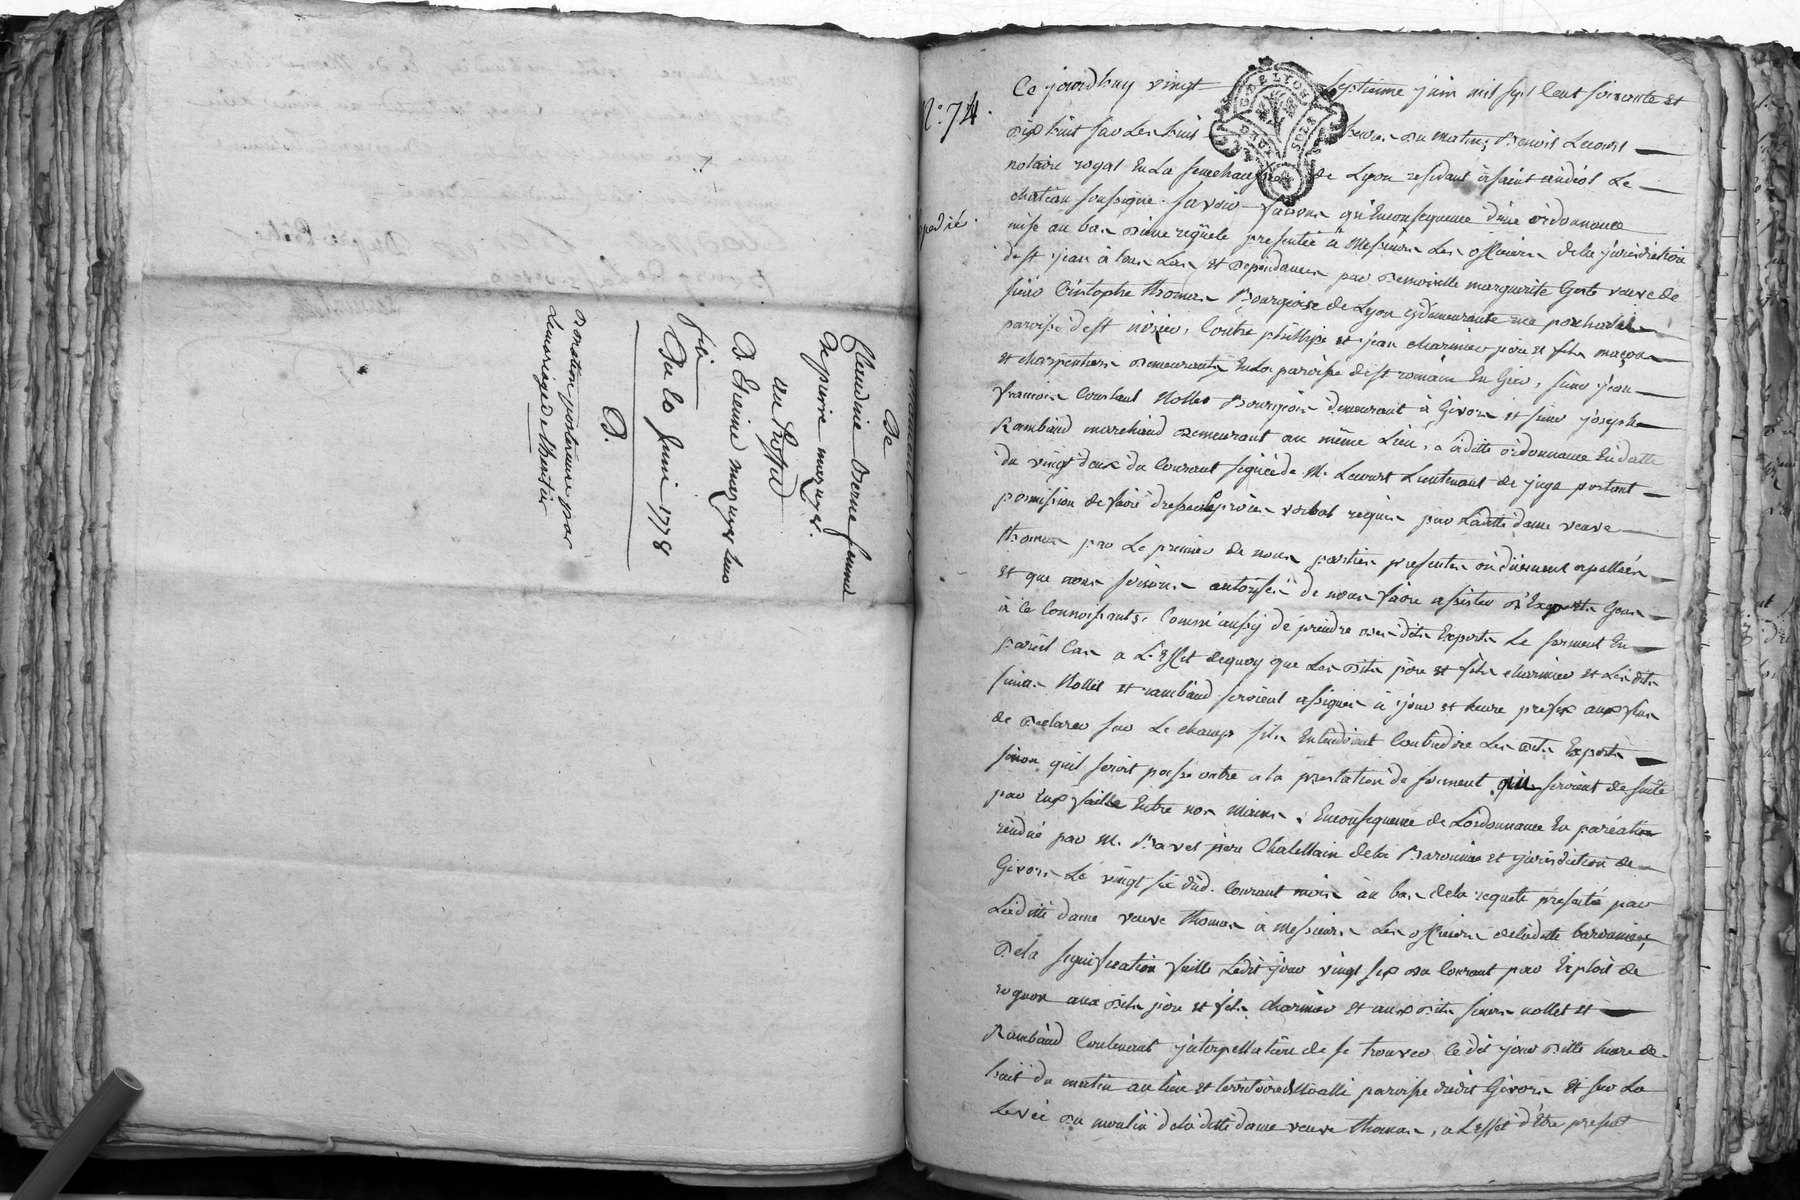 testament
De
Claudine Berne femme
De pierre mazuyer
au Profit
D'Etienne mazuyer leur
fils
Du 20 Juin 1778
B.
Donation posterieure par
Le mariage de l'heritier
N.° 74.
Expedié.
GE LYON
Ce jourdhuy vingt septieme juin mil sept Cent soixante Et
dix huit sur Les huit heures du matin, Benoit Lecourt
notaire royal En La senechaussée de Lyon residant à saint andéol Le
chateau soussigné. savoir faisons qu'En consequence d'une ordonnance
mise au bas d'une requete presentée à Messieurs Les officiers de la jurisdiction
de st jean à tous Las et dependances par Demoiselle marguerite Gorte veuve de
sieur Cristophe thomas Bourgeois de Lyon y demeurante rue
paroisse de st nizier, Contre phillipe et jean charmier pere et fils maçons
et charpentiers demeurants En La paroisse de st romain En Gier, sieur jean
francois Constant Nollet Bourgeois demeurant à Givors et sieur joseph
Rambaud marchand demeurant au même Lieu, Laditte ordonnance En datte
du vingt deux du Courant signée de M. Lecourt Lieutenant de juge portant
permission de faire dresser Le procès verbal requis par Laditte dame veuve
thomas par Le premier de nous parties presentes ou duement apellées
Et que nous serions autorisés de nous faire assister d'Experts Gens
à Ce Connoissants, Comm'aussy de prendre des dits Experts Le serment En
pareil Cas a L'Effet dequoy que Les dits pere et fils charmier et Les dits
sieurs Nollet et rambaud seroient assignés à jour et heure prefix aux fins
de declarer sur Le champ s'ils Entendoient Contredire Les dits Experts
sinon qu'il seroit passé outre a la prestation de serment qui seroient de suite
par Eux faitte Entre nos mains, En consequence de L'ordonnance En paréatis
rendue par M. Bavet pere Chatellain de la Baronnie et jurisdiction de
Givors Le vingt six dud. Courant mois au bas de la requete presentée par
Laditte dame veuve thomas à Messieurs Les officiers de laditte baronnie,
De la signification faitte Ledit jour vingt six du Courant par Exploit de
aux dits pere et fils charmier et aux dits sieurs nollet et
Rambaud Contenant interpellation de se trouver Ce dit jour ditte heure de
huit du matin au lieu et territoire paroisse dudit Givors Et sur La
Levée du moulin de Laditte dame veuve thomas, a L'Effet d'Etre present